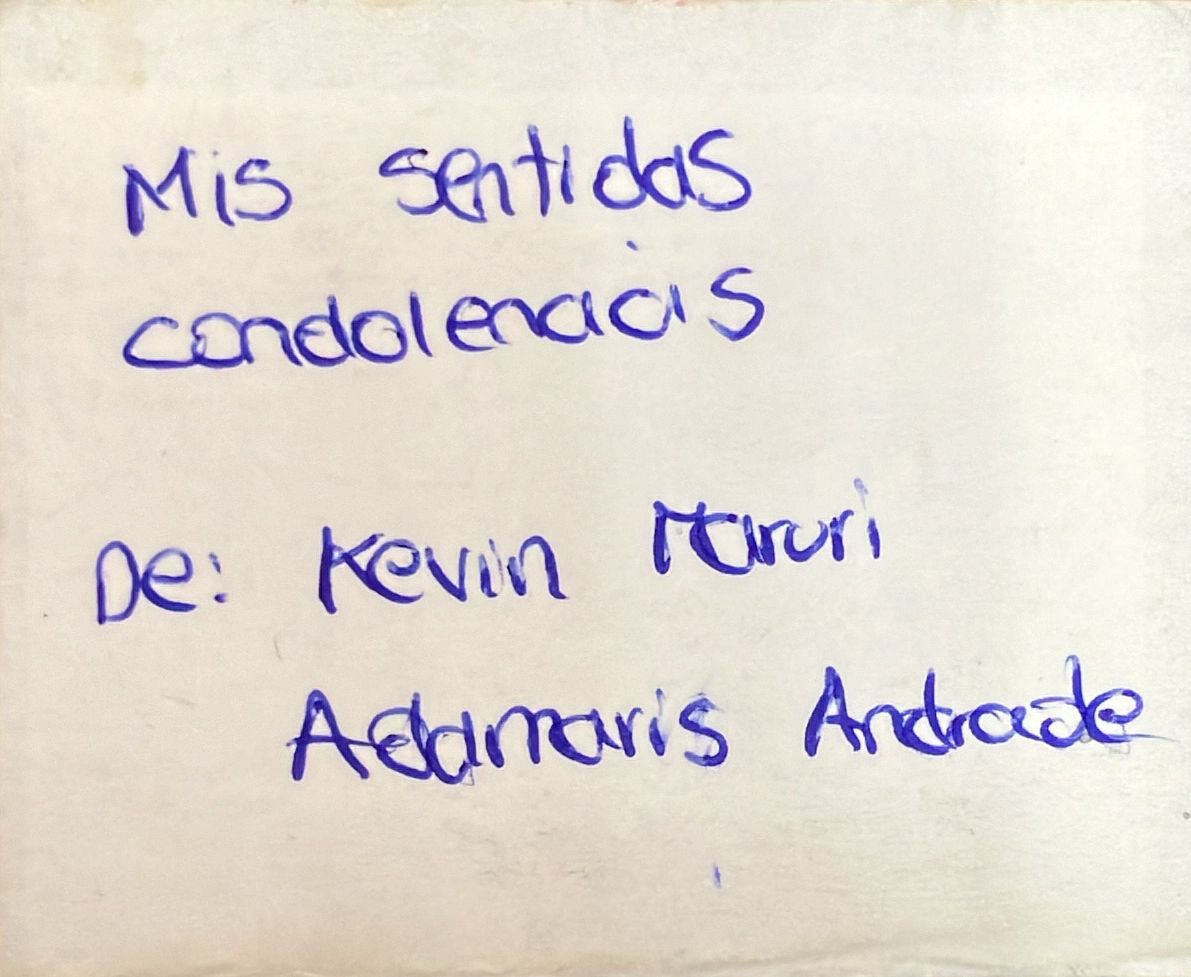 Mis sentidas
condolencias
De: Kevin Maruri
Adamaris Andrade